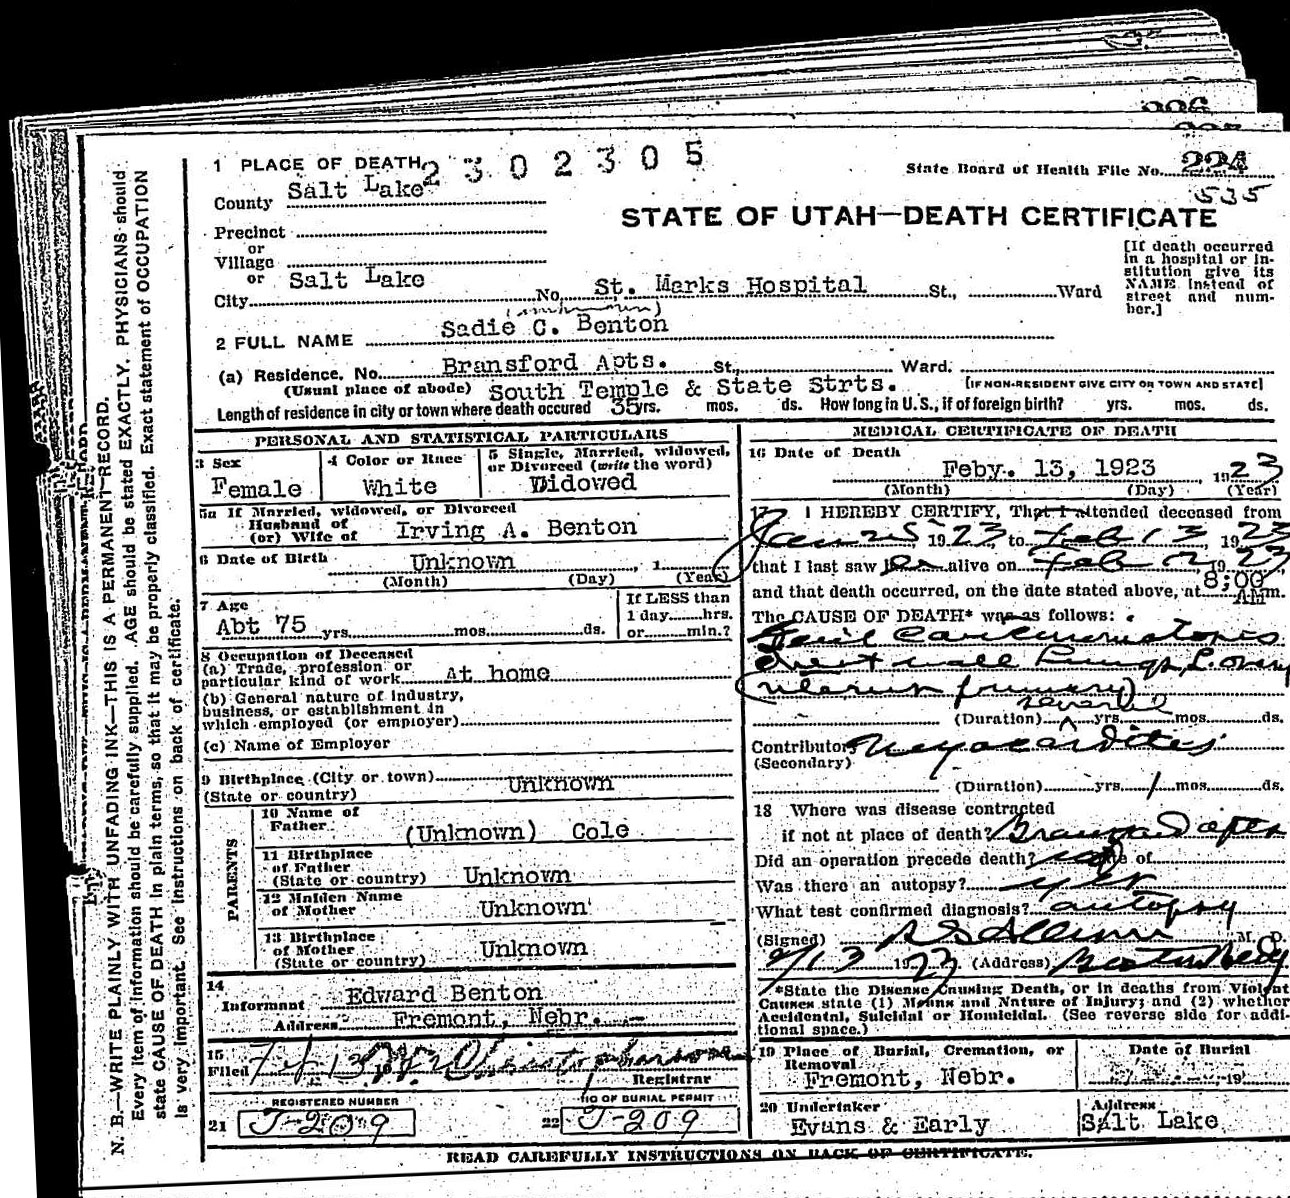 226
1 PLACE OF DEATH 2302305
State Board of Health File No. 224
535
County Salt Lake
STATE OF UTAH—DEATH CERTIFICATE
Precinct
or
Village
or
City Salt Lake No. St. Marks Hospital St., Ward
[If death occurred in a hospital or institution give its NAME instead of street and number.]
2 FULL NAME Sadie C. Benton
(a) Residence. No. Bransford Apts. St., Ward.
(Usual place of abode) South Temple & State Strts. [IF NON-RESIDENT GIVE CITY OR TOWN AND STATE]
Length of residence in city or town where death occured 35 yrs. mos. ds. How long in U. S., if of foreign birth? yrs. mos. ds.
PERSONAL AND STATISTICAL PARTICULARS
3 Sex
Female
4 Color or Race
White
5 Single, Married, widowed, or Divorced (write the word)
Widowed
5a If Married, widowed, or Divorced
Husband of
(or) Wife of Irving A. Benton
6 Date of Birth Unknown , 1
(Month) (Day) (Year)
7 Age
Abt 75 yrs. mos. ds.
If LESS than
1 day hrs.
or min.?
8 Occupation of Deceased
(a) Trade, profession or
particular kind of work At home
(b) General nature of industry,
business, or establishment in
which employed (or employer)
(c) Name of Employer
9 Birthplace (City or town) Unknown
(State or country)
PARENTS
10 Name of
Father (Unknown) Cole
11 Birthplace
of Father
(State or country) Unknown
12 Maiden Name
of Mother Unknown
13 Birthplace
of Mother
(State or country) Unknown
14
Informant Edward Benton
Address Fremont, Nebr.
15
Filed Feb 13 19
Registrar
REGISTERED NUMBER
21 J-209
NO OF BURIAL PERMIT
22 J-209
MEDICAL CERTIFICATE OF DEATH
16 Date of Death
Feby. 13, 1923 , 1923
(Month) (Day) (Year)
17 I HEREBY CERTIFY, That I attended deceased from
Jan 25 1923, to Feb 13, 1923
that I last saw her alive on Feb 1923
and that death occurred, on the date stated above, at 8:00 AM m.
The CAUSE OF DEATH* was as follows:
Carcinomatosis
chest wall Lungs, L. ovary
(uterus primary)
several
(Duration) yrs. mos. ds.
Contributory Myocarditis
(Secondary)
(Duration) yrs. 1 mos. ds.
18 Where was disease contracted
if not at place of death?
Did an operation precede death? of
Was there an autopsy? yes
What test confirmed diagnosis? autopsy
(Signed) M. D.
2/13 1923 (Address)
*State the Disease Causing Death, or in deaths from Violent
Causes state (1) Means and Nature of Injury; and (2) whether
Accidental, Suicidal or Homicidal. (See reverse side for addi-
tional space.)
19 Place of Burial, Cremation, or
Removal
Fremont, Nebr.
Date of Burial
19
20 Undertaker
Evans & Early
Address
Salt Lake
READ CAREFULLY INSTRUCTIONS ON BACK OF CERTIFICATE.
N. B.—WRITE PLAINLY WITH UNFADING INK—THIS IS A PERMANENT RECORD.
Every item of information should be carefully supplied. AGE should be stated EXACTLY. PHYSICIANS should
state CAUSE OF DEATH in plain terms, so that it may be properly classified. Exact statement of OCCUPATION
is very important. See instructions on back of certificate.